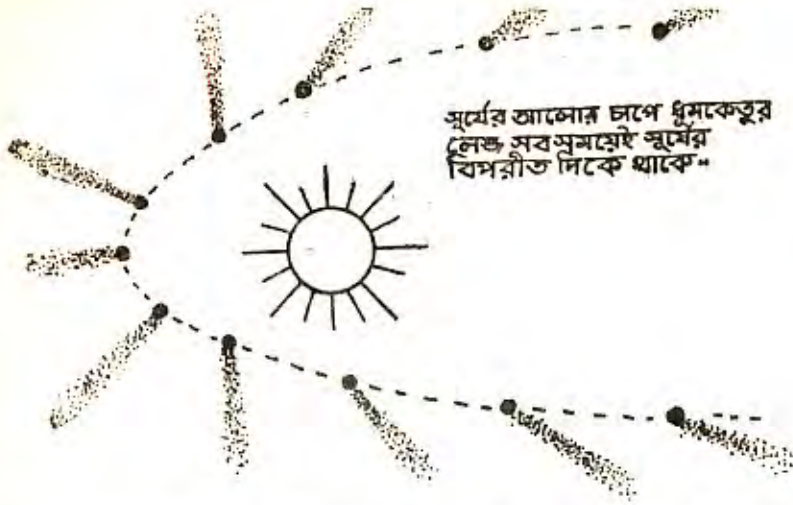 সূর্যের আলোর চাপে ধূমকেতুর
লেজ সব সময়েই সূর্যের
বিপরীত দিকে থাকে।